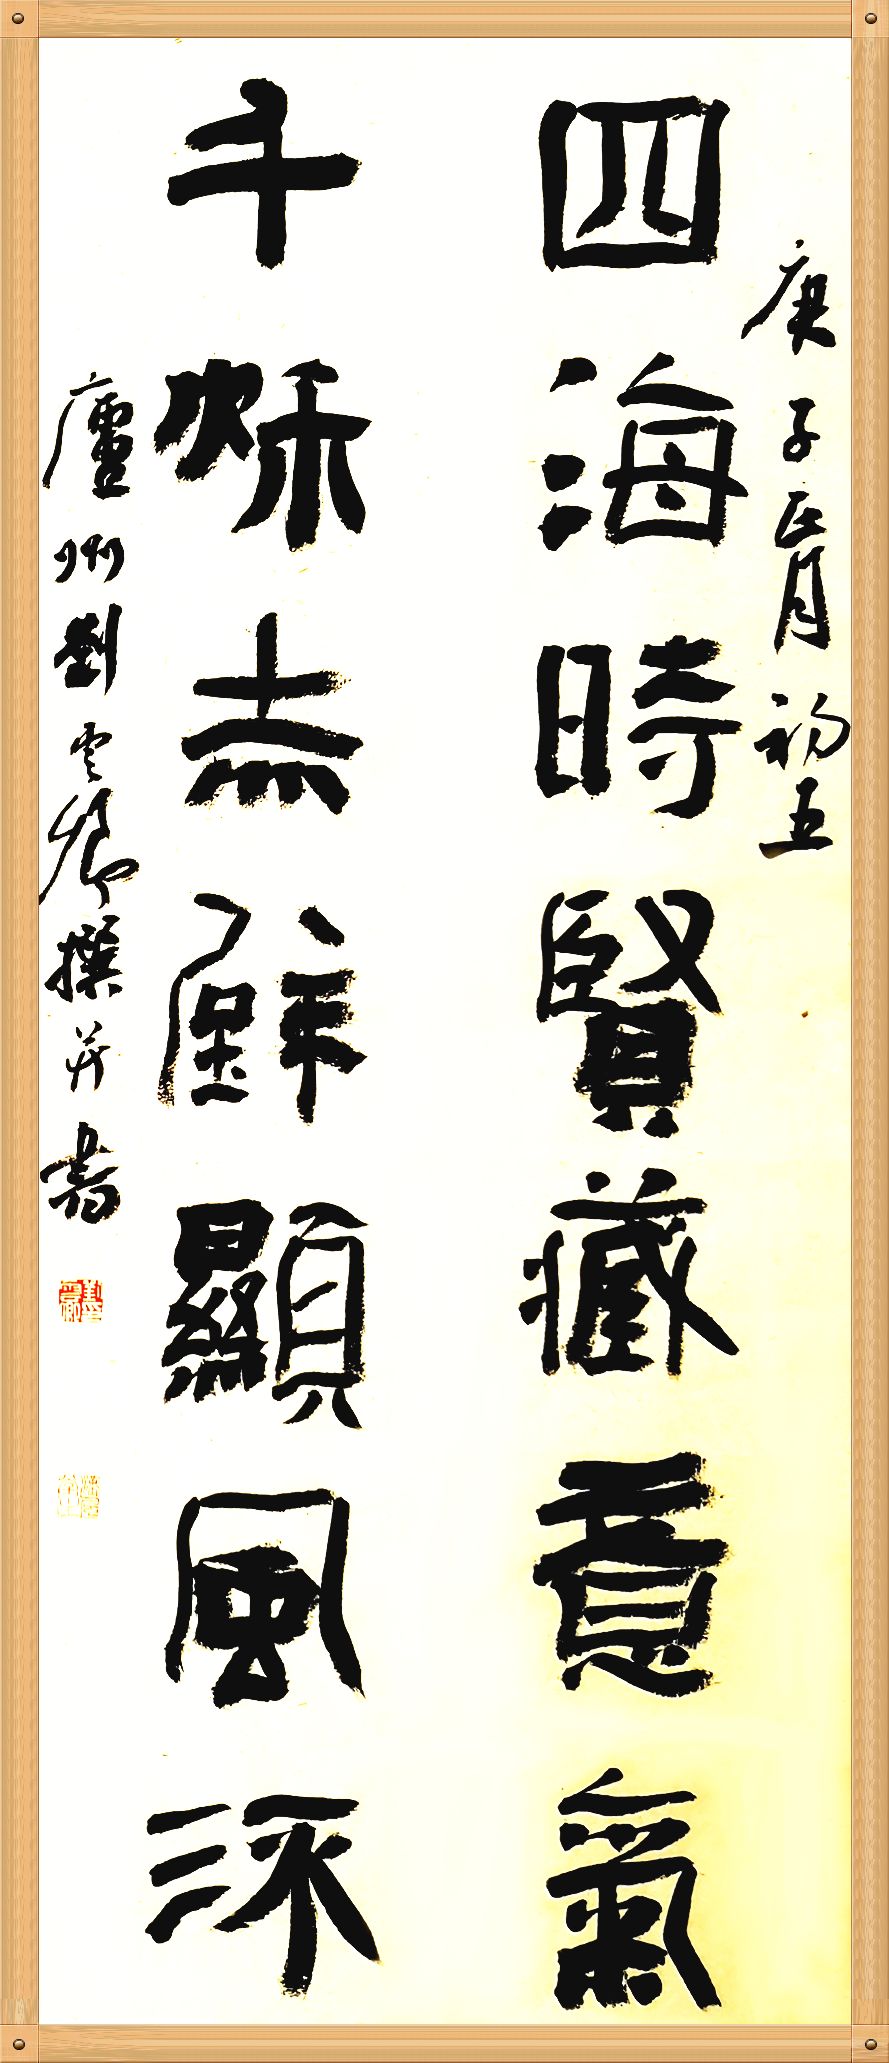 庚子正月初五
四海時賢藏意氣
千秌赤壁顯風流
廬州劉雲撰并書